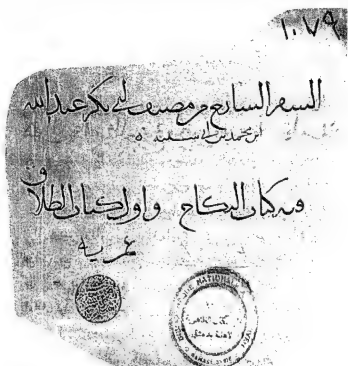 ١٠٧٩
السفر السابع من مصنف أبي بكر عبد الله
ابن محمد بن أبي شيبة
فيه كتاب النكاح وأول كتاب الطلاق
عمرية
NATIONALE